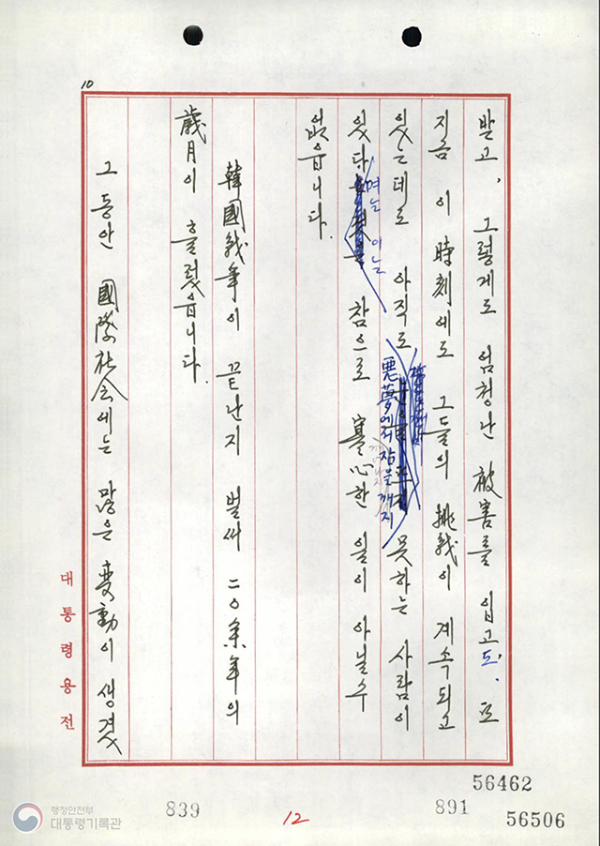 10
받고, 그렇게도 엄청난 被害를 입고도, 또
지금 이 時刻에도 그들의 挑戰이 계속되고
있는데도 아직도 悪夢에서 잠을 깨지 못하는 사람이
있다 며는 이는 참으로 寒心한 일이 아닐수
없읍니다.
韓國戰爭이 끝난지 벌써 二〇余年의
歲月이 흘렀읍니다.
그 동안 國際社会에는 많은 变動이 생겼
대통령용전
56462
839
12
891
56506
행정안전부
대통령기록관